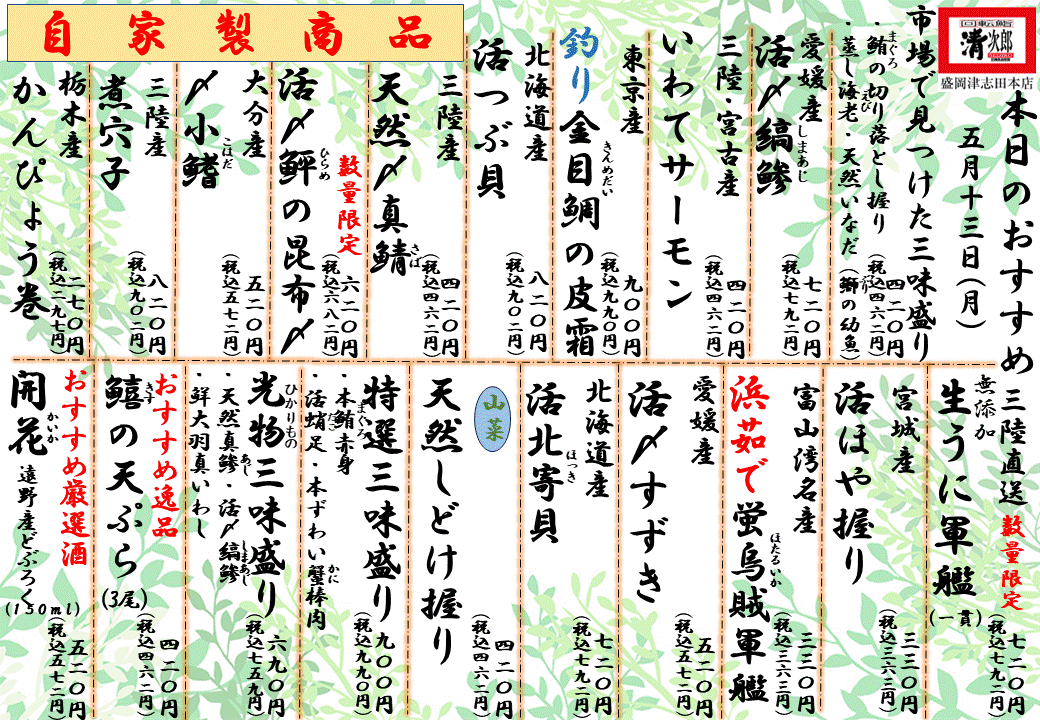 回転鮨
清次郎
SEIJIRO
盛岡津志田本店
本日のおすすめ
五月十三日(月)
市場で見つけた三味盛り
・鮪の切り落とし握り
まぐろ
・蒸し海老・天然いなだ(鰤の幼魚)
えび
ぶり
四二〇円
(税込四六二円)
愛媛産
活〆縞鯵
しまあじ
七二〇円
(税込七九二円)
三陸・宮古産
いわてサーモン
四二〇円
(税込四六二円)
東京産
釣り金目鯛の皮霜
きんめだい
九〇〇円
(税込九九〇円)
北海道産
活つぶ貝
八二〇円
(税込九〇二円)
自家製商品
三陸産
天然〆真鯖
さば
四二〇円
(税込四六二円)
数量限定
活〆鮃の昆布〆
ひらめ
六二〇円
(税込六八二円)
大分産
〆小鰭
こはだ
五二〇円
(税込五七二円)
三陸産
煮穴子
八二〇円
(税込九〇二円)
栃木産
かんぴょう巻
二七〇円
(税込二九七円)
三陸直送 数量限定
無添加
生うに軍艦(一貫)
七二〇円
(税込七九二円)
宮城産
活ほや握り
三三〇円
(税込三六三円)
富山湾名産
浜茹で蛍烏賊軍艦
ほたるいか
三三〇円
(税込三六三円)
愛媛産
活〆すずき
五二〇円
(税込五七二円)
北海道産
活北寄貝
ほっき
七二〇円
(税込七九二円)
山菜
天然しどけ握り
四二〇円
(税込四六二円)
特選三味盛り
・本鮪赤身
まぐろ
・活蛸足・本ずわい蟹棒肉
たこ
かに
九〇〇円
(税込九九〇円)
光物三味盛り
ひかりもの
・天然真鯵・活〆縞鯵
あじ
しまあじ
・鮮大羽真いわし
六九〇円
(税込七五九円)
おすすめ逸品
鱚の天ぷら(3尾)
きす
四二〇円
(税込四六二円)
おすすめ厳選酒
開花 遠野産どぶろく
かいか
(150ml)
五二〇円
(税込五七二円)